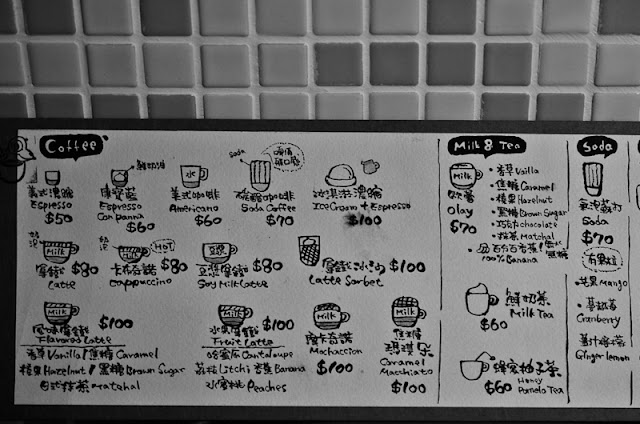 Coffee
soda
義式濃縮
Espresso
$50
康寶藍
Espresso
Con panna
$60
水
美式咖啡
Americano
$60
碳酸咖啡
Soda Coffee
$70
冰淇淋濃縮
Ice Cream + Espresso
$100
Milk
拿鐵
$80
Latte
Milk
HOT
卡布奇諾
$80
Cappuccino
豆漿
豆漿拿鐵
$80
Soy Milk Latte
拿鐵冰沙
$100
Latte Sorbet
Milk
風味拿鐵
$100
Flavored Latte
香草Vanilla / 焦糖 Caramel
榛果Hazelnut / 黑糖 Brown Sugar
日式抹茶 Matchal
Milk
水果拿鐵
$100
Fruit Latte
哈密瓜 Cantaloupe
荔枝 Litchi 香蕉 Banana
水蜜桃 Peaches
Milk
摩卡奇諾
Mochaccion
$100
Milk
焦糖
瑪琪朵
Caramel
Macchiato
$100
Milk & Tea
Milk
歐蕾
Olay
$70
• 香草 Vailla
• 焦糖 Caramel
• 榛果 Hazelnut
• 黑糖 Brown Sugar
• 巧克力 chocolate
• 抹茶 Matchal
百分百香蕉
100% Banana
鮮奶茶
Milk Tea
$60
蜂蜜柚子茶
Honey
Pomelo Tea
$60
Soda
氣泡蘇打
Soda
$70
有果粒
芒果 Mango
蔓越莓
Cranberry
薑汁檸檬
Ginger lemon